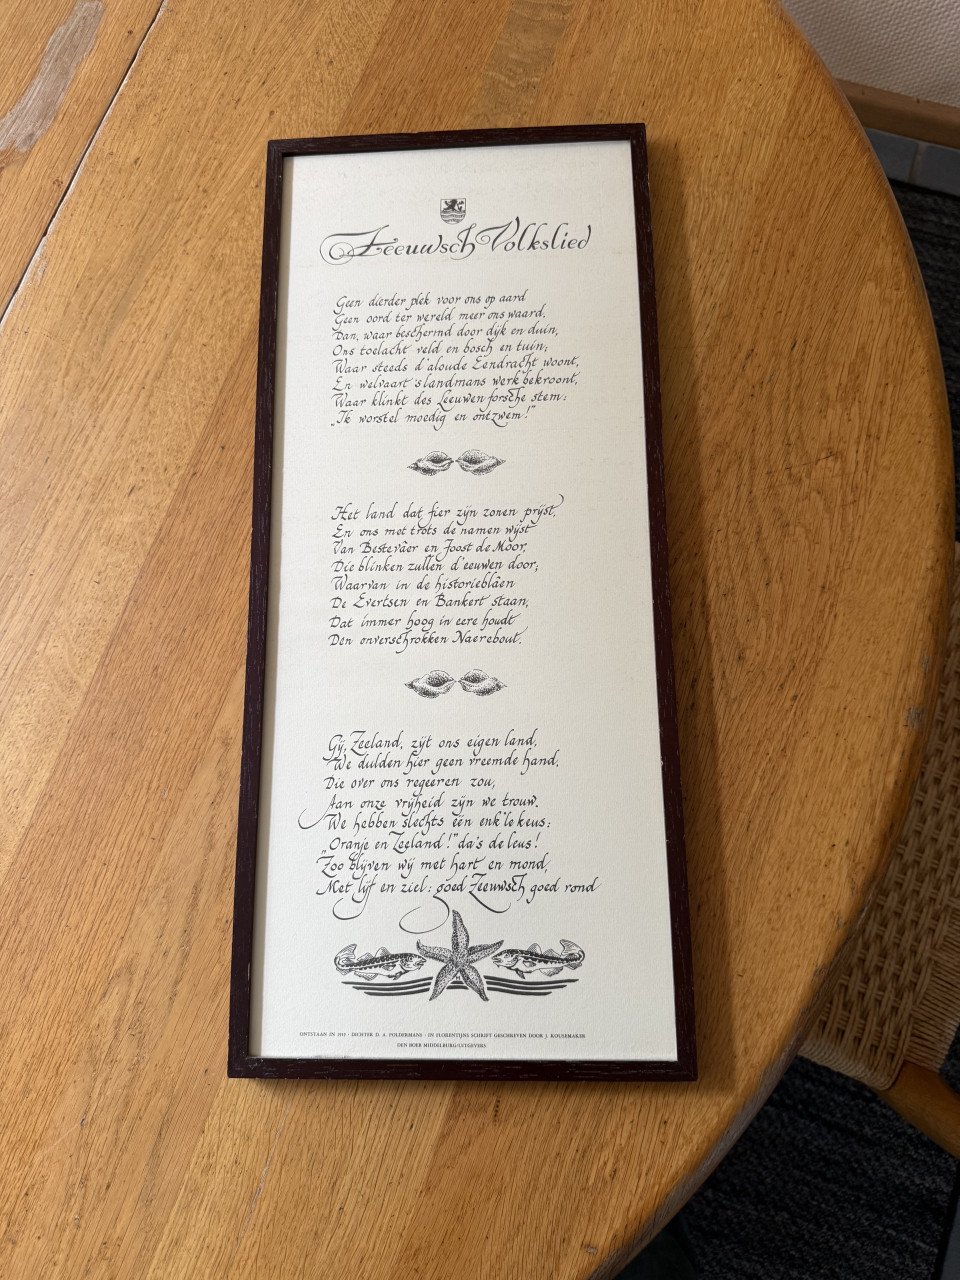 Zeeuwsch Volkslied
Geen dierder plek voor ons op aard
Geen oord ter wereld meer ons waard,
Dan, waar beschermd door dijk en duin,
Ons toelacht veld en bosch en tuin;
Waar steeds d'aloude Eendracht woont,
En welvaart 's landmans werk bekroont,
Waar klinkt des Leeuwen forsche stem:
„Ik worstel moedig en ontzwem!"
Het land dat fier zijn zonen prijst,
En ons met trots de namen wijst
Van Bestevâer en Joost de Moor,
Die blinken zullen d'eeuwen door;
Waarvan in de historieblâen
De Evertsen en Bankert staan,
Dat immer hoog in eere houdt
Den onverschrokken Naerebout.
Gij, Zeeland, zijt ons eigen land,
We dulden hier geen vreemde hand,
Die over ons regeeren zou,
Aan onze vrijheid zijn we trouw.
We hebben slechts één enk'le keus:
„Oranje en Zeeland!" da's de leus!
Zoo blijven wij met hart en mond,
Met lijf en ziel: goed Zeeuwsch goed rond
ONTSTAAN IN 1919 · DICHTER D. A. POLDERMANS · IN FLORENTIJNS SCHRIFT GESCHREVEN DOOR J. KOUSEMAKER
DEN BOER MIDDELBURG/UITGEVERS